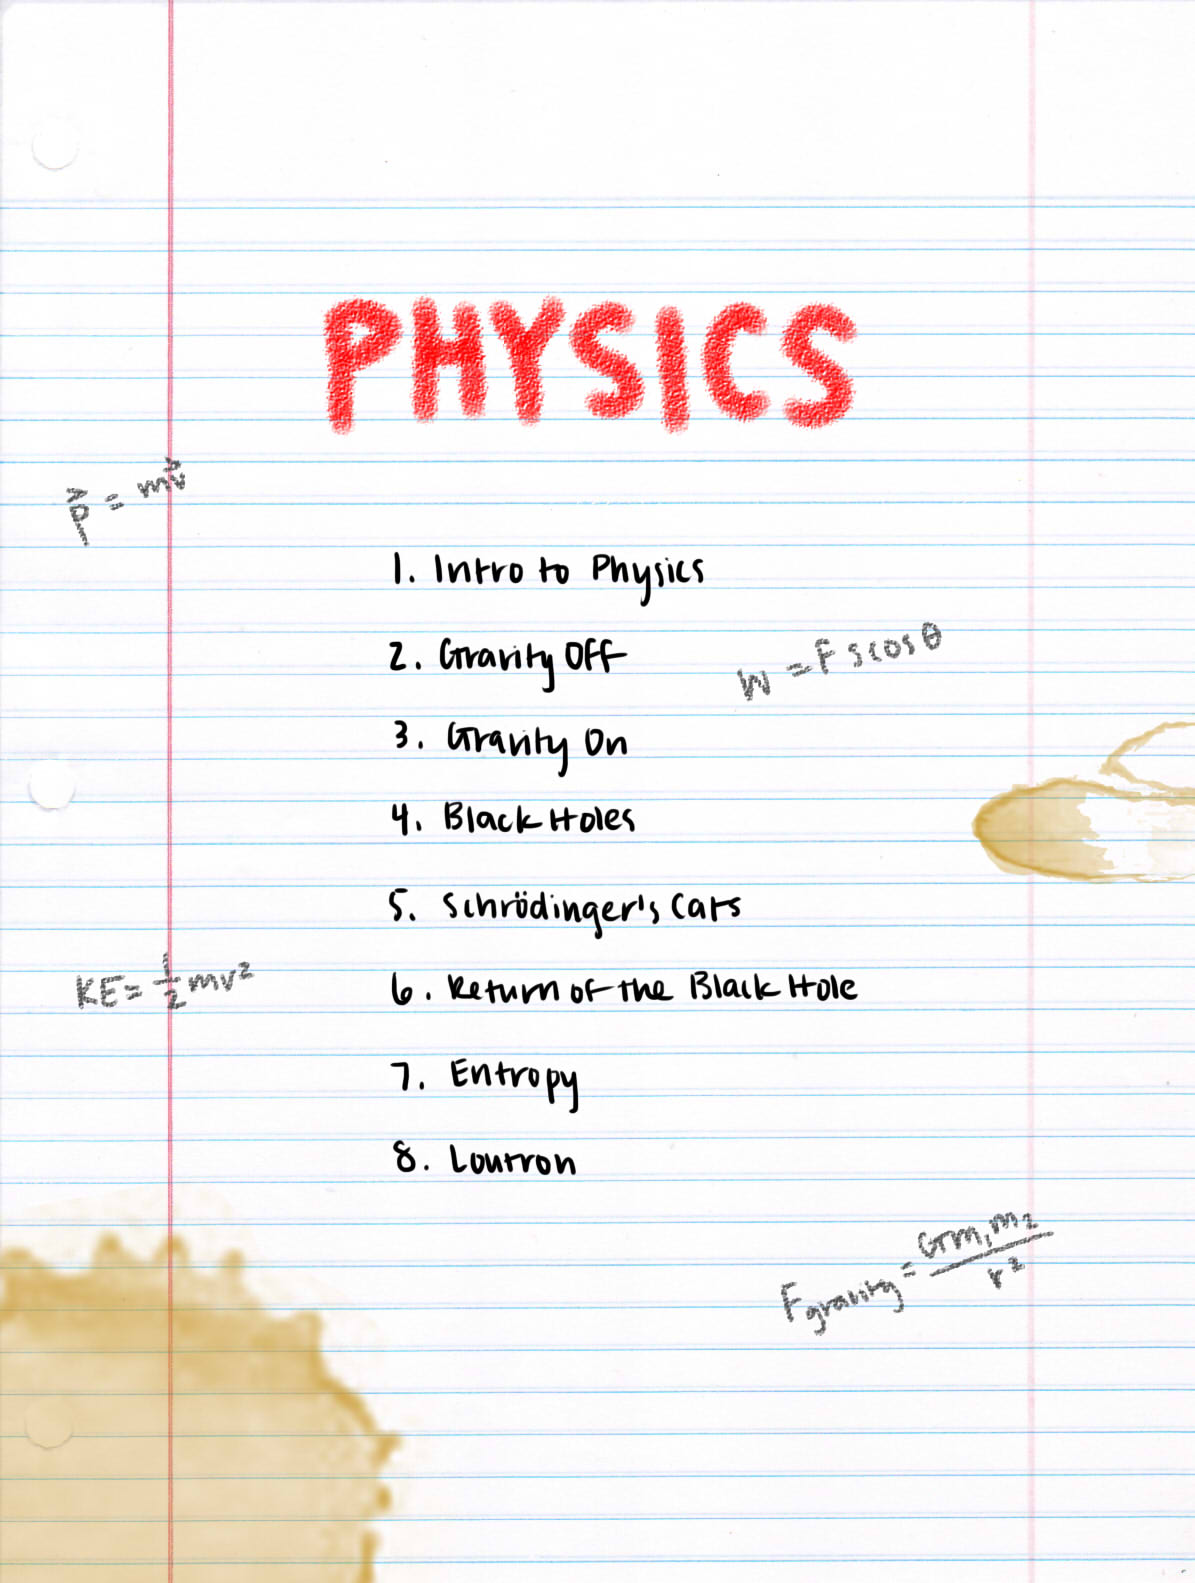 PHYSICS
p⃗ = mv⃗
1. Intro to Physics
2. Gravity Off
W = F s cos θ
3. Gravity On
4. Black Holes
5. Schrödinger's Cats
KE = 1/2 mv²
6. Return of the Black Hole
7. Entropy
8. Loutron
Fgravity = Gm₁m₂/r²